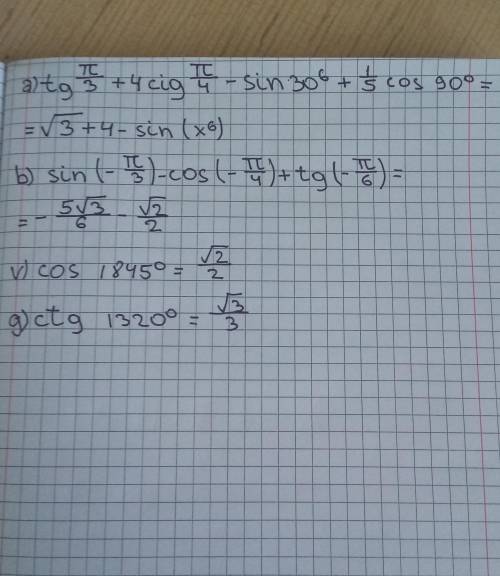 a) tg π/3 + 4 cig π/4 - sin 30⁶ + 1/5 cos 90⁰ =
= √3 + 4 - sin (x⁶)
b) sin (-π/3) - cos (-π/4) + tg (-π/6) =
= - 5√3/6 - √2/2
v) cos 1845⁰ = √2/2
g) ctg 1320⁰ = √3/3